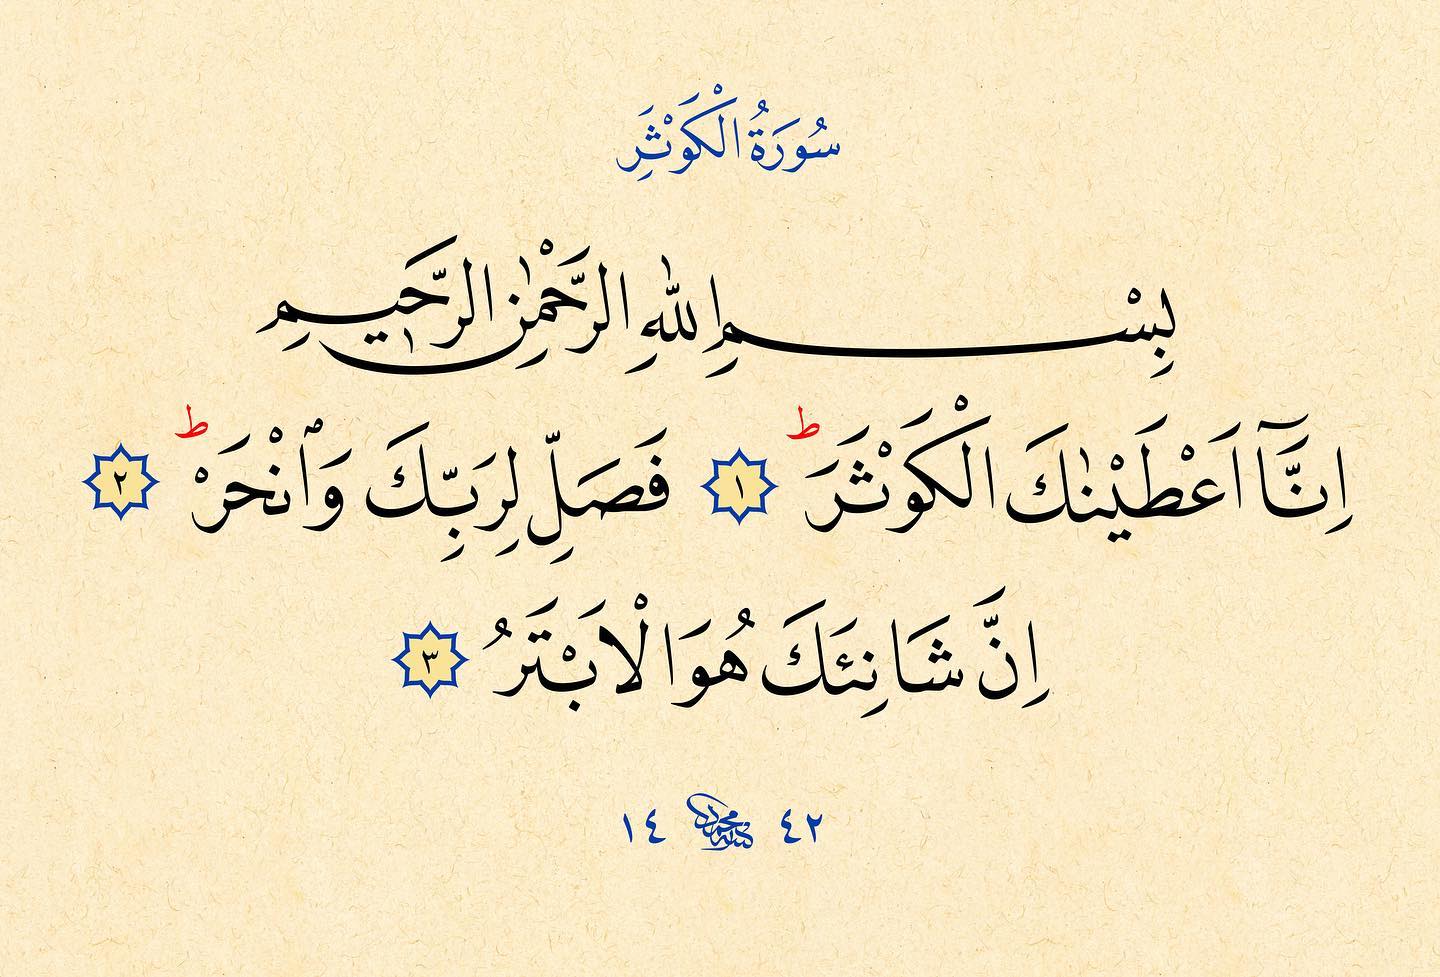 سُورَةُ الْكَوْثَرِ
بِسْمِ اللّٰهِ الرَّحْمٰنِ الرَّحٖيمِ
اِنَّٓا اَعْطَيْنٰكَ الْكَوْثَرَ ط ١ فَصَلِّ لِرَبِّكَ وَٱنْحَرْ ط ٢
اِنَّ شَانِئَكَ هُوَ الْاَبْتَرُ ٣
١٤ ٤٢